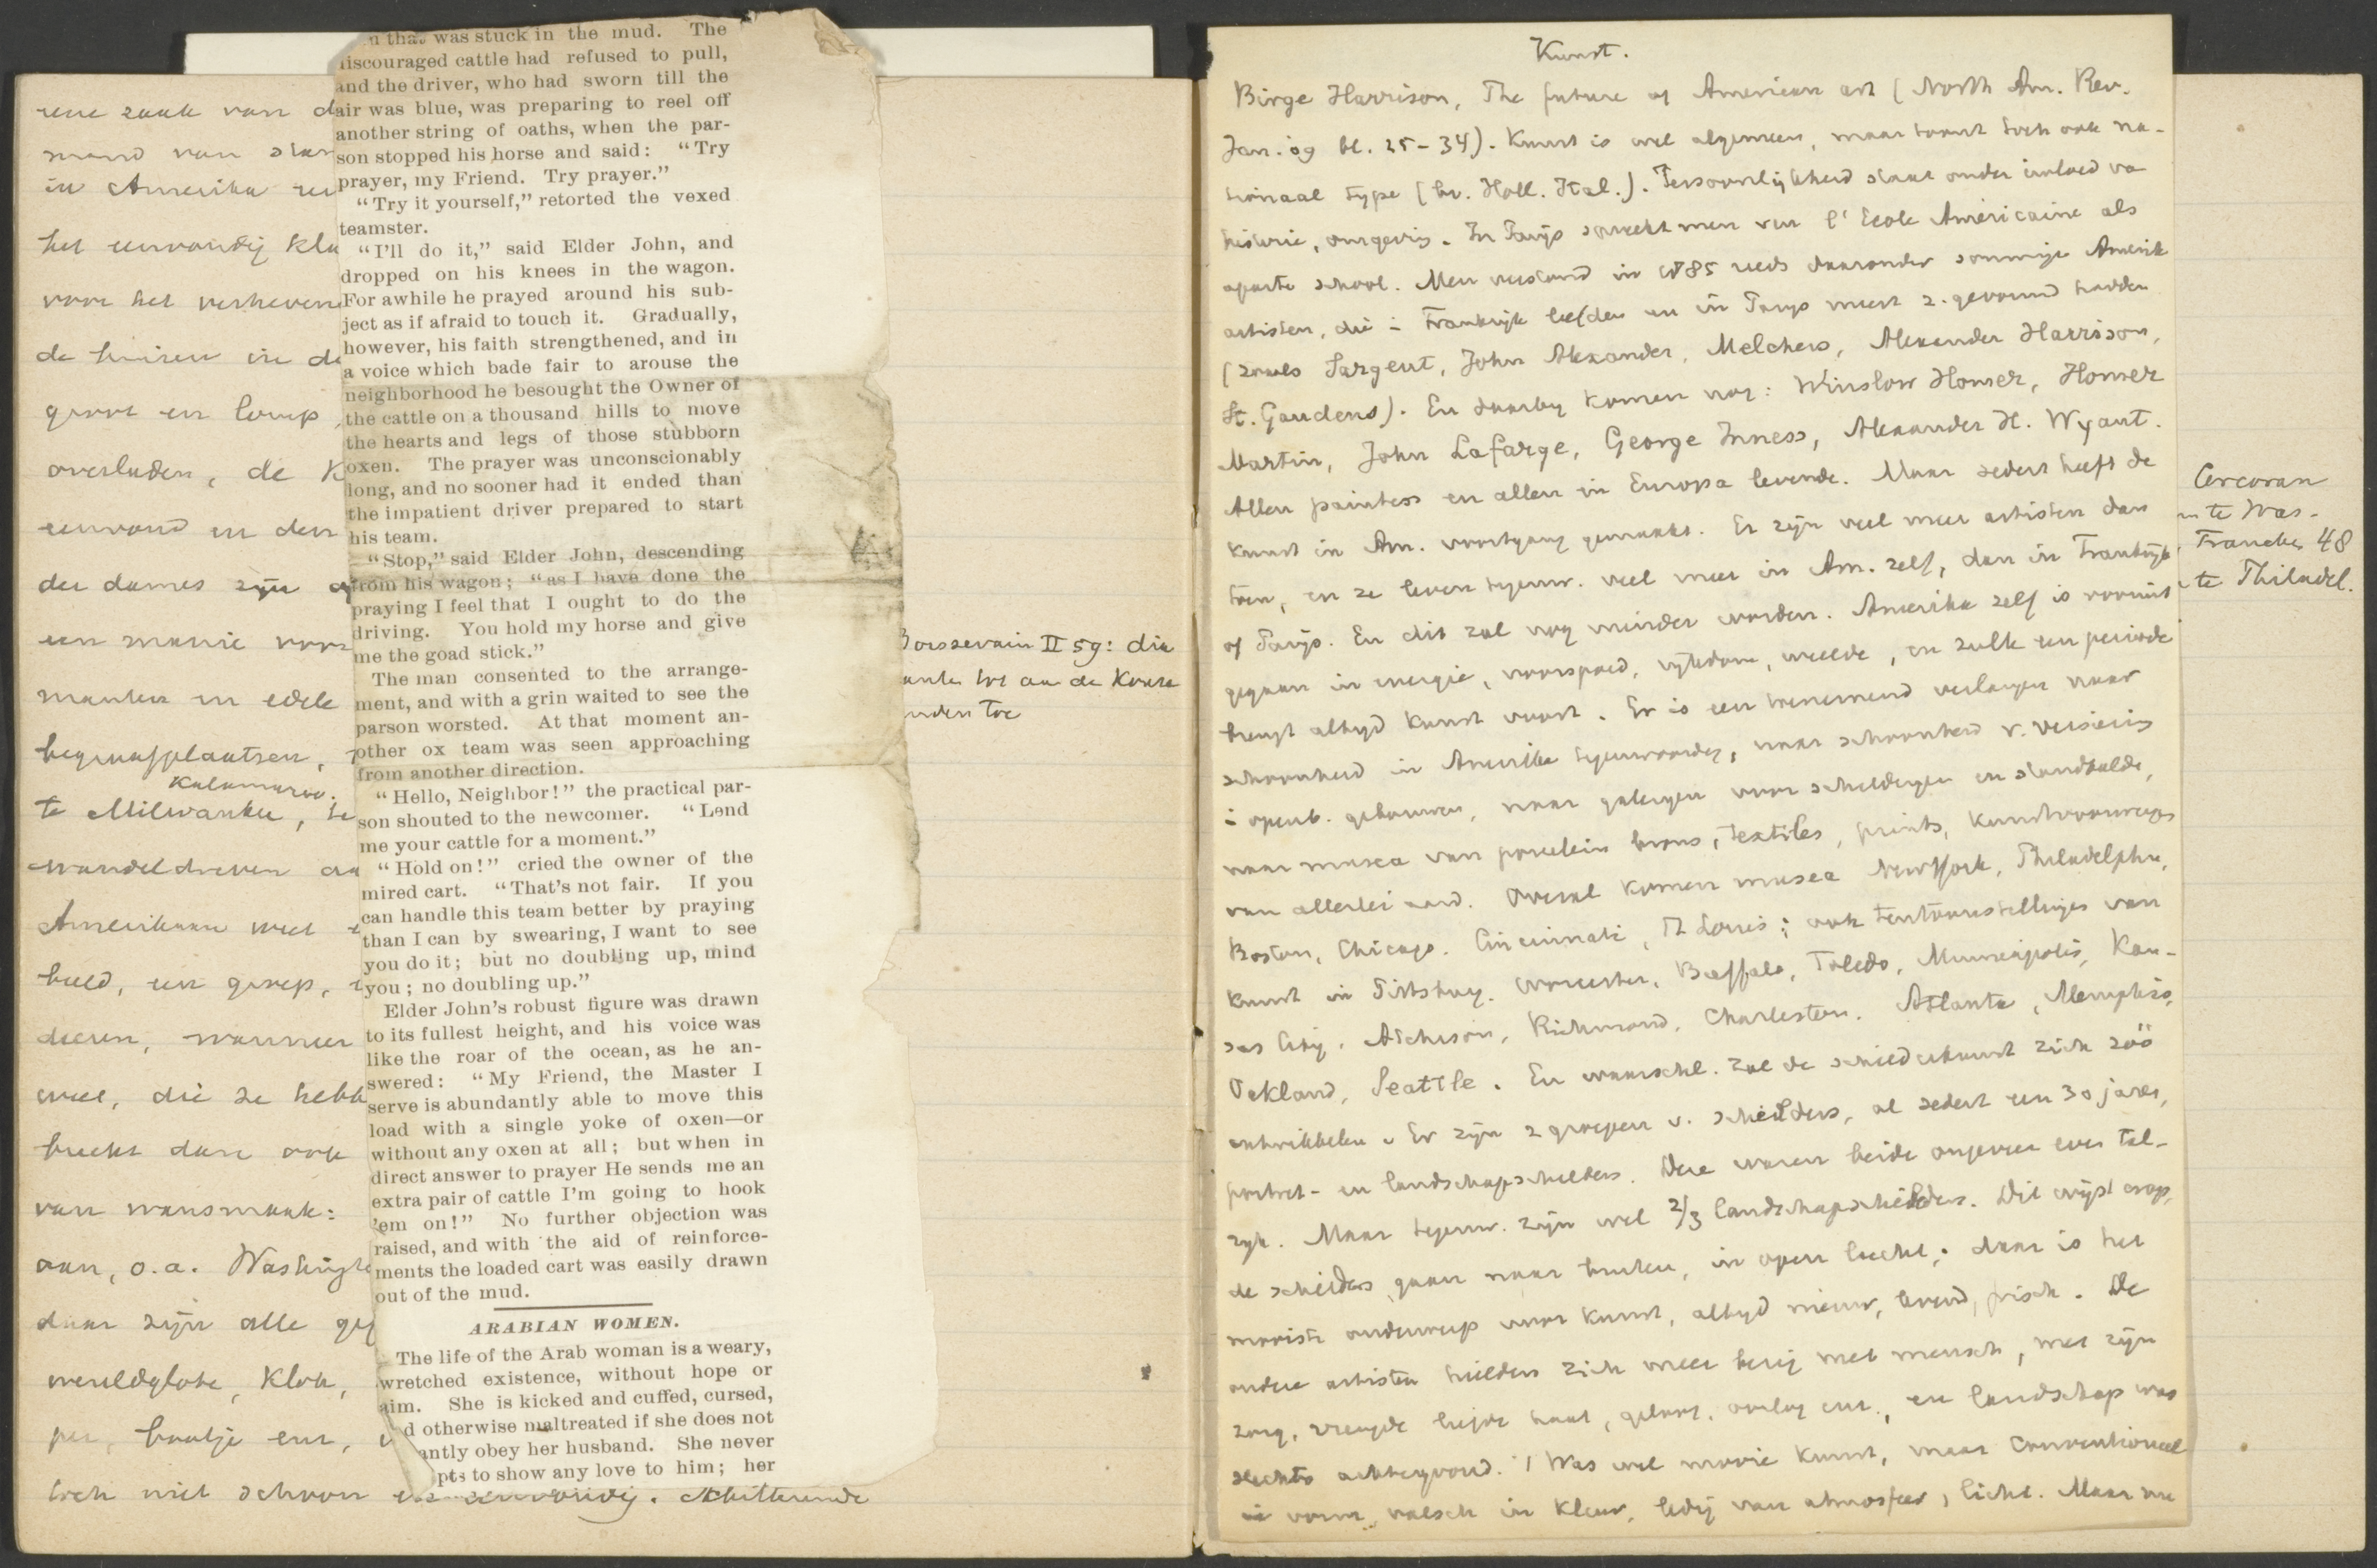 rene zaak van d
mand van
in Amerika
het eenvoudig
voor het verheven
de huizen in de
groot en
overladen, de K
eenvoud en den
der dames zijn
een manie voor
manten en edele
begraafplaatsen,
Kalamazoo.
te Milwaukee, te
wandeldreven
Amerikaan met
beeld, een groep,
dieren, wanneer
die ze hebb
dan ook
van wansmaak:
aan, o.a. Washingt
daar zijn alle
wereldglobe, klok,
bootje enz,
toch niet schoon eenvoudig. Schitterende
that was stuck in the mud. The
discouraged cattle had refused to pull,
and the driver, who had sworn till the
air was blue, was preparing to reel off
another string of oaths, when the par-
son stopped his horse and said: "Try
prayer, my Friend. Try prayer."
"Try it yourself," retorted the vexed
teamster.
"I'll do it," said Elder John, and
dropped on his knees in the wagon.
For awhile he prayed around his sub-
ject as if afraid to touch it. Gradually,
however, his faith strengthened, and in
a voice which bade fair to arouse the
neighborhood he besought the Owner of
the cattle on a thousand hills to move
the hearts and legs of those stubborn
oxen. The prayer was unconscionably
long, and no sooner had it ended than
the impatient driver prepared to start
his team.
"Stop," said Elder John, descending
from his wagon; "as I have done the
praying I feel that I ought to do the
driving. You hold my horse and give
me the goad stick."
The man consented to the arrange-
ment, and with a grin waited to see the
parson worsted. At that moment an-
other ox team was seen approaching
from another direction.
"Hello, Neighbor!" the practical par-
son shouted to the newcomer. "Lend
me your cattle for a moment."
"Hold on!" cried the owner of the
mired cart. "That's not fair. If you
can handle this team better by praying
than I can by swearing, I want to see
you do it; but no doubling up, mind
you; no doubling up."
Elder John's robust figure was drawn
to its fullest height, and his voice was
like the roar of the ocean, as he an-
swered: "My Friend, the Master I
serve is abundantly able to move this
load with a single yoke of oxen—or
without any oxen at all; but when in
direct answer to prayer He sends me an
extra pair of cattle I'm going to hook
'em on!" No further objection was
raised, and with the aid of reinforce-
ments the loaded cart was easily drawn
out of the mud.
ARABIAN WOMEN.
The life of the Arab woman is a weary,
wretched existence, without hope or
aim. She is kicked and cuffed, cursed,
d otherwise maltreated if she does not
antly obey her husband. She never
pts to show any love to him; her
Boissevain II 59: dia
tot aan de
toe
Kunst.
Birge Harrison, The future of American art (North Am. Rev.
Jan. 09 bl. 25-34). Kunst is wel algemeen, maar toont toch ook na-
tionaal type (bv. Holl. Ital.). Persoonlijkheid staat onder invloed va
historie, omgeving. In Parijs spreekt men van l'Ecole Américaine als
aparte school. Men verstond in 1885 reeds daaronder sommige Amerik
artisten, die i Frankrijk leefden en in Parys meest z. gevormd hadden
(zooals Sargent, John Alexander, Melchers, Alexander Harrison,
St. Gaudens). En daarby komen nog: Winslow Homer, Homer
Martin, John Lafarge, George Inness, Alexander H. Wyant.
Allen painters en allen in Europa levende. Maar sedert heeft de
kunst in Am. voortgang gemaakt. Er zijn veel meer artisten dan
toen, en ze leven tegenw. veel meer in Am. zelf, dan in Frankrijk
of Parijs. En dit zal nog minder worden. Amerika zelf is vooruit
gegaan in energie, voorspoed, rijkdom, weelde, en zulk een periode
brengt altijd kunst voort. Er is een toenemend verlangen naar
schoonheid in Amerika tegenwoordig, naar schoonheid v. versiering
i openb. gebouwen, naar galeryen voor schilderyen en standbeelden,
naar musea van porcelein brons, textiles, prints, kunstvoorwerpen
van allerlei aard. Overal komen musea New York, Philadelphia,
Boston, Chicago. Cincinnati, St Louis; ook tentoonstellingen van
kunst in Pittsburg. Worcester, Buffalo, Toledo, Minneapolis, Kan-
sas City, Atchison, Richmond, Charleston. Atlanta, Memphis,
Oakland, Seattle. En waarschl. zal de schilderkunst zich zóó
ontwikkelen. Er zijn 2 groepen v. schilders, al sedert een 30 jaren,
portret- en landschapschilders. Deze waren beide ongeveer even tal-
ryk. Maar tegenw. zijn wel 2/3 landschapschilders. Dit wijst erop,
de schilders gaan naar buiten, in open lucht; daar is het
mooiste onderwerp voor kunst, altyd nieuw, levend, frisch. De
oudere artisten hielden zich meer bezig met mensch, met zijn
zorg, vreugde liefde haat, geloof, oorlog enz., en landschap was
slechts achtergrond. Was wel mooie kunst, maar conventioneel
in vorm, valsch in kleur, ledig van atmosfeer, licht. Maar nu
Corcoran
te Was-
48
te Philadel.